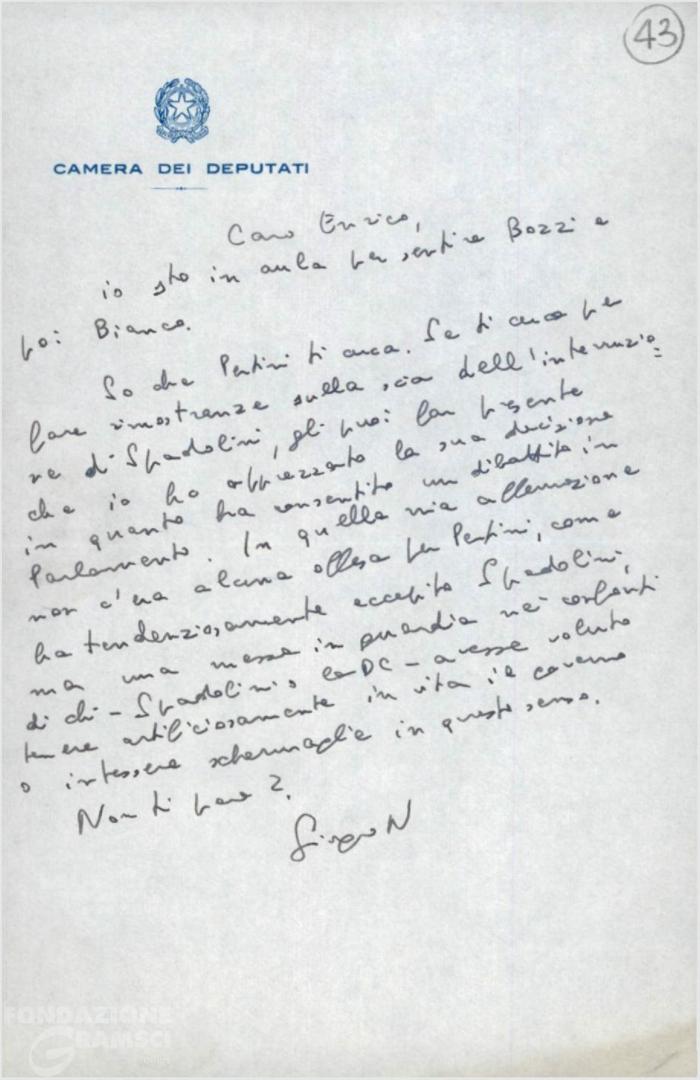 43
CAMERA DEI DEPUTATI
Caro Enrico,
io sto in aula per sentire Bozzi e
poi Bianco.
So che Pertini ti cerca. Se ti cerca per
fare rimostranze sulla scia dell'interruzio=
ne di Spadolini, gli puoi far presente
che io ho apprezzato la sua decisione
in quanto ha consentito un dibattito in
Parlamento. In quella mia affermazione
non c'era alcuna offesa per Pertini, come
ha tendenziosamente eccepito Spadolini,
ma una messa in guardia nei confronti
di chi - Spadolini o la DC - avesse voluto
tenere artificiosamente in vita il governo
o intessere schermaglie in questo senso.
Non ti pare?
Giorgio N
FONDAZIONE
GRAMSCI